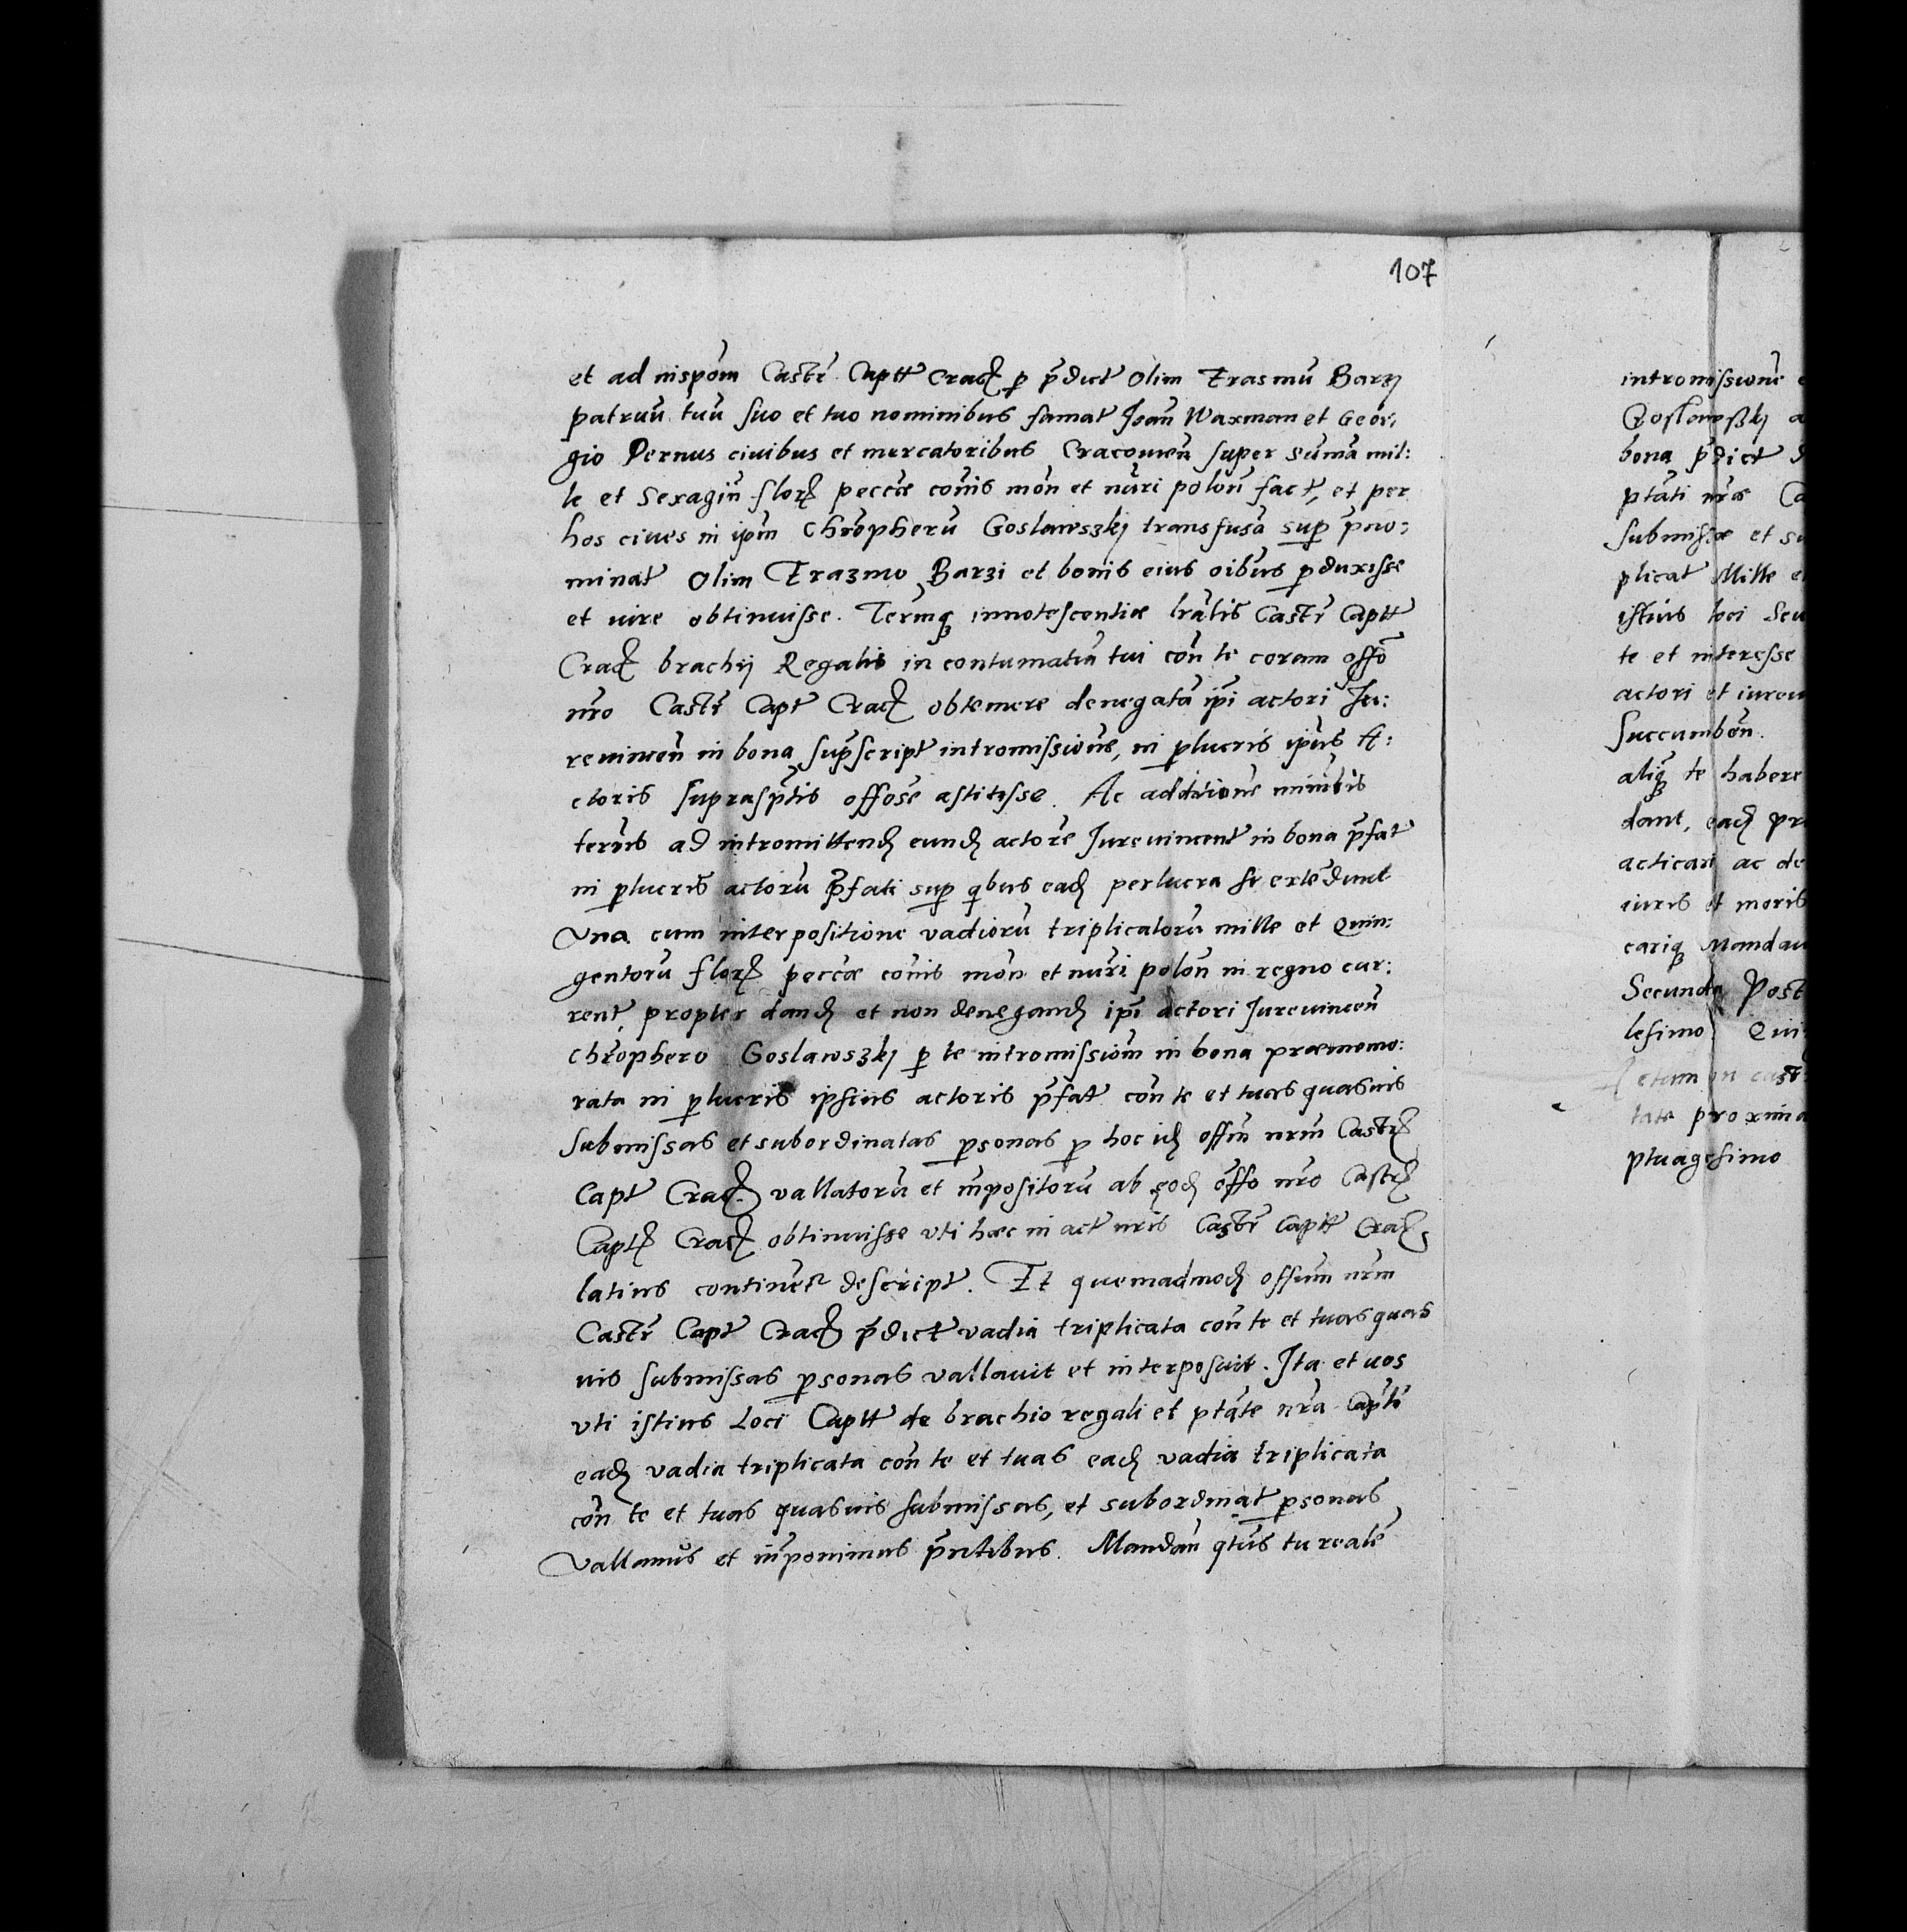 107
et ad nispom̄ Castr̄ Captt Crac̄ p p̄dict Olim Erasmū Barzj
patruū tuū suo et tuo nominibus famat Joan̄ Waxman et Geor,
gio Pernus ciuibus et mercatoribus Cracouien̄ super sūma mil:
le et Sexagin̄ flor̄ peccæ cōnis mon̄ et nūri polon̄ fact, et per
hos ciues in ipm̄ Chr̄opherū Goslawszkj transfusa sup p̄no:
minat Olim Erazmo Barzi et bonis eius oībus pduxisse
et iure obtinuisse. Termq innotescentiæ lrālis Castr̄ Captt
Crac̄ brachij Regalis in contumatiā tui con̄ te coram offō
nr̄o Castr̄ Capt Crac̄ obtemere denegatā ipī actori Ju:
reuincen̄ in bona sup̄script intromissione, in plucris ipius A:
ctoris supraspt̄is offose astitisse. Ac additione minist̄
terius ad intromittend eund actorē Jureuincent in bona p̄fat
in plucris actorū p̄fati sup qbus ead perlucra se extēdunt
Vna cum interpositione vadiorū triplicatorū mille et Quin:
gentorū flor̄ peccæ cōnis mon̄ et nūri polon̄ in regno cur:
rent, propter dand et non denegand ipī actori Jureuincen̄
Chr̄ophero Goslawszkj p te intromissiom̄ in bona præmemo:
rata in plucris ipsius actoris p̄fat con̄ te et tuas quasuis
submissas et subordinatas psonas p hoc id offm̄ nrm̄ Castr̄
Capt Crac̄ vallatorū et inpositorū ab eod offo nr̄o Castr̄
Capt Crac̄ obtinuisse vti hæc in act nris Castr̄ Captt Crac̄
latius continet descript. Et quemadmod offium nrm̄
Castr̄ Capt Crac̄ p̄dict vadia triplicata con̄ te et tuas quas
uis submissas psonas vallauit et interposuit. Ita et uos
vti istius Loci Captt de brachio regali et ptāte nr̄a Captl̄i
ead vadia triplicata con̄ te et tuas ead vadia triplicata
con̄ te et tuas quasuis submissas, et subordinat psonas
Vallamus et inponimus p̄ntibus. Mandan̄ qtus tu realē
intromissione
Goslawszkj a
bona p̄dict
ptāti nr̄æ Ca
submissæ et su
plicat Mille e
istius loci Seu
te et interesse
actori et iureu
Succumben̄.
aliq te habere
dant, ead pr
acticari ac de
iuris et moris
cariq Mandau
Secunda Post
lesimo Qui
etum in cast
tate proxima
ptuagesimo